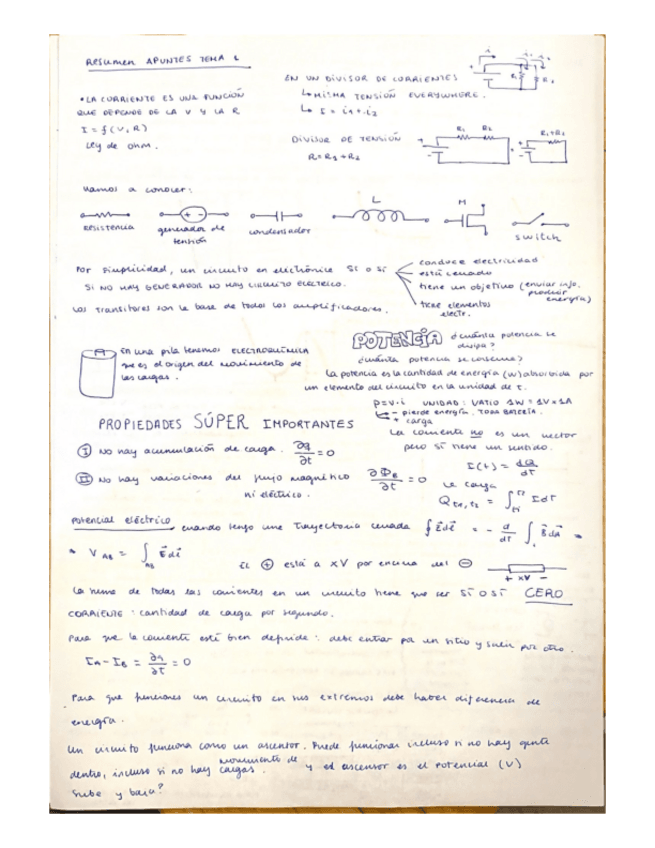 Resumen APUNTES TEMA 1
• LA CORRIENTE ES UNA FUNCIÓN
QUE DEPENDE DE LA V Y LA R
I = f(V, R)
Ley de Ohm.
EN UN DIVISOR DE CORRIENTES
↳ MISMA TENSIÓN EVERYWHERE.
↳ I = i1 + i2
R1
R2
DIVISOR DE TENSIÓN
R = R1 + R2
R1 R2
R1+R2
Vamos a conocer:
L
M
Resistencia
generador de
tensión
condensador
switch
Por simplicidad, un circuito en electrónica SÍ O SÍ
SI NO HAY GENERADOR NO HAY CIRCUITO ELÉCTRICO.
conduce electricidad
está cerrado
tiene un objetivo (enviar info,
producir
energía)
tiene elementos
electr.
Los transitores son la base de todos los amplificadores.
EN una pila tenemos ELECTROQUÍMICA
que es el origen del movimiento de
las cargas.
POTENCIA
¿cuánta potencia se
disipa?
¿cuánta potencia se consume?
La potencia es la cantidad de energía (W) absorbida por
un elemento del circuito en la unidad de t.
P = V · i UNIDAD: VATIO 1W = 1V x 1A
- pierde energía. TODA BATERÍA.
+ carga
PROPIEDADES SÚPER IMPORTANTES
La corriente no es un vector
pero sí tiene un sentido.
I No hay acumulación de carga. ∂q/∂t = 0
II No hay variaciones del flujo magnético ∂ΦB/∂t = 0
ni eléctrico.
I(t) = dQ/dt
La carga
Q t1,t2 = ∫ I dt
Potencial eléctrico cuando tengo una Trayectoria cerrada ∮ E dl = - d/dt ∫ B dA
VAB = ∫AB E dl
EL + está a xV por encima del -
+ xV -
La suma de todas las corrientes en un circuito tiene que ser SÍ O SÍ CERO
CORRIENTE: cantidad de carga por segundo.
Para que la corriente esté bien definida: debe entrar por un sitio y salir por otro.
IA - IB = ∂q/∂t = 0
Para que funcione un circuito en sus extremos debe haber diferencia de
energía.
Un circuito funciona como un ascensor. Puede funcionar incluso si no hay gente
dentro, incluso si no hay movimiento de cargas. y el ascensor es el potencial (V)
Sube y baja?